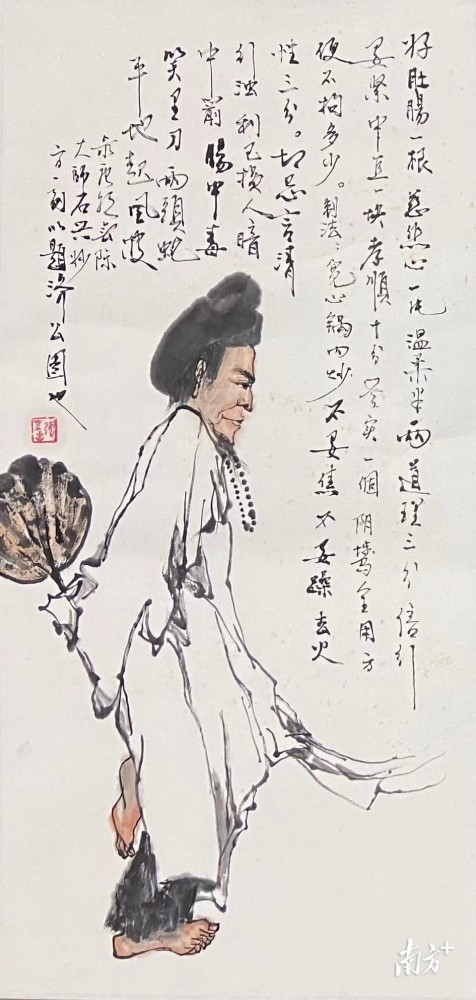 好肚腸一根 慈悲心一片 温柔半兩 道理三分 信行
要緊 中直一块 孝順十分 老实一個 阴騭全用 方
便不拘多少。制法：宽心锅内炒 不要焦 不要躁 去火
性三分。切忌言清
行浊 利己损人 暗
中箭 腸中毒
笑里刀 兩頭蛇
平地起風波
無际
大师石头妙
方一则以题濟公图也
南方+